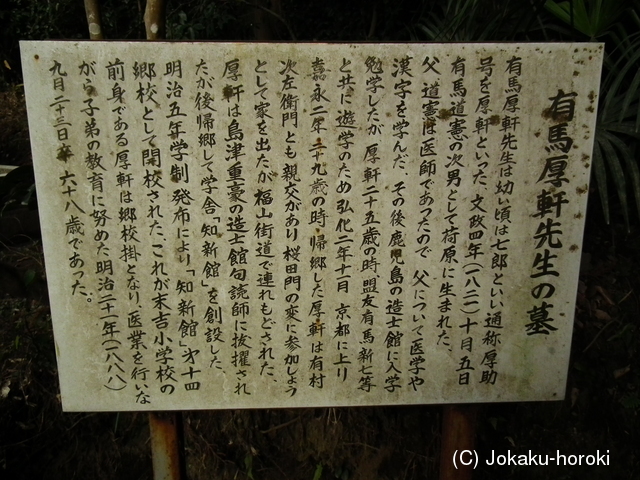 有馬厚軒先生の墓
有馬厚軒先生は幼い頃は七郎といい通称厚助
号を厚軒といった、文政四年(一八二一)十月五日
有馬道憲の次男として荷原に生まれた、
父 道憲は医師であったので 父について医学や
漢字を学んだ その後鹿児島の造士館に入学
勉学したが 厚軒二十五歳の時、盟友有馬新七等
と共に遊学のため弘化二年十月 京都に上り
嘉永二年 二十九歳の時 帰郷した厚軒は有村
次左衛門とも親交があり 桜田門の変に参加しよう
として家を出たが 福山街道で連れもどされた、
厚軒は島津重豪の造士館句読師に抜擢され
たが後帰郷して学舎「知新館」を創設した
明治五年学制発布により「知新館」才十四
郷校として開校された、これが末吉小学校の
前身である厚軒は郷校掛となり、医業を行いな
がら子弟の教育に努めた明治二十一年(一八八八)
九月二十三日卒 六十八歳であった。
(C) Jokaku-horoki